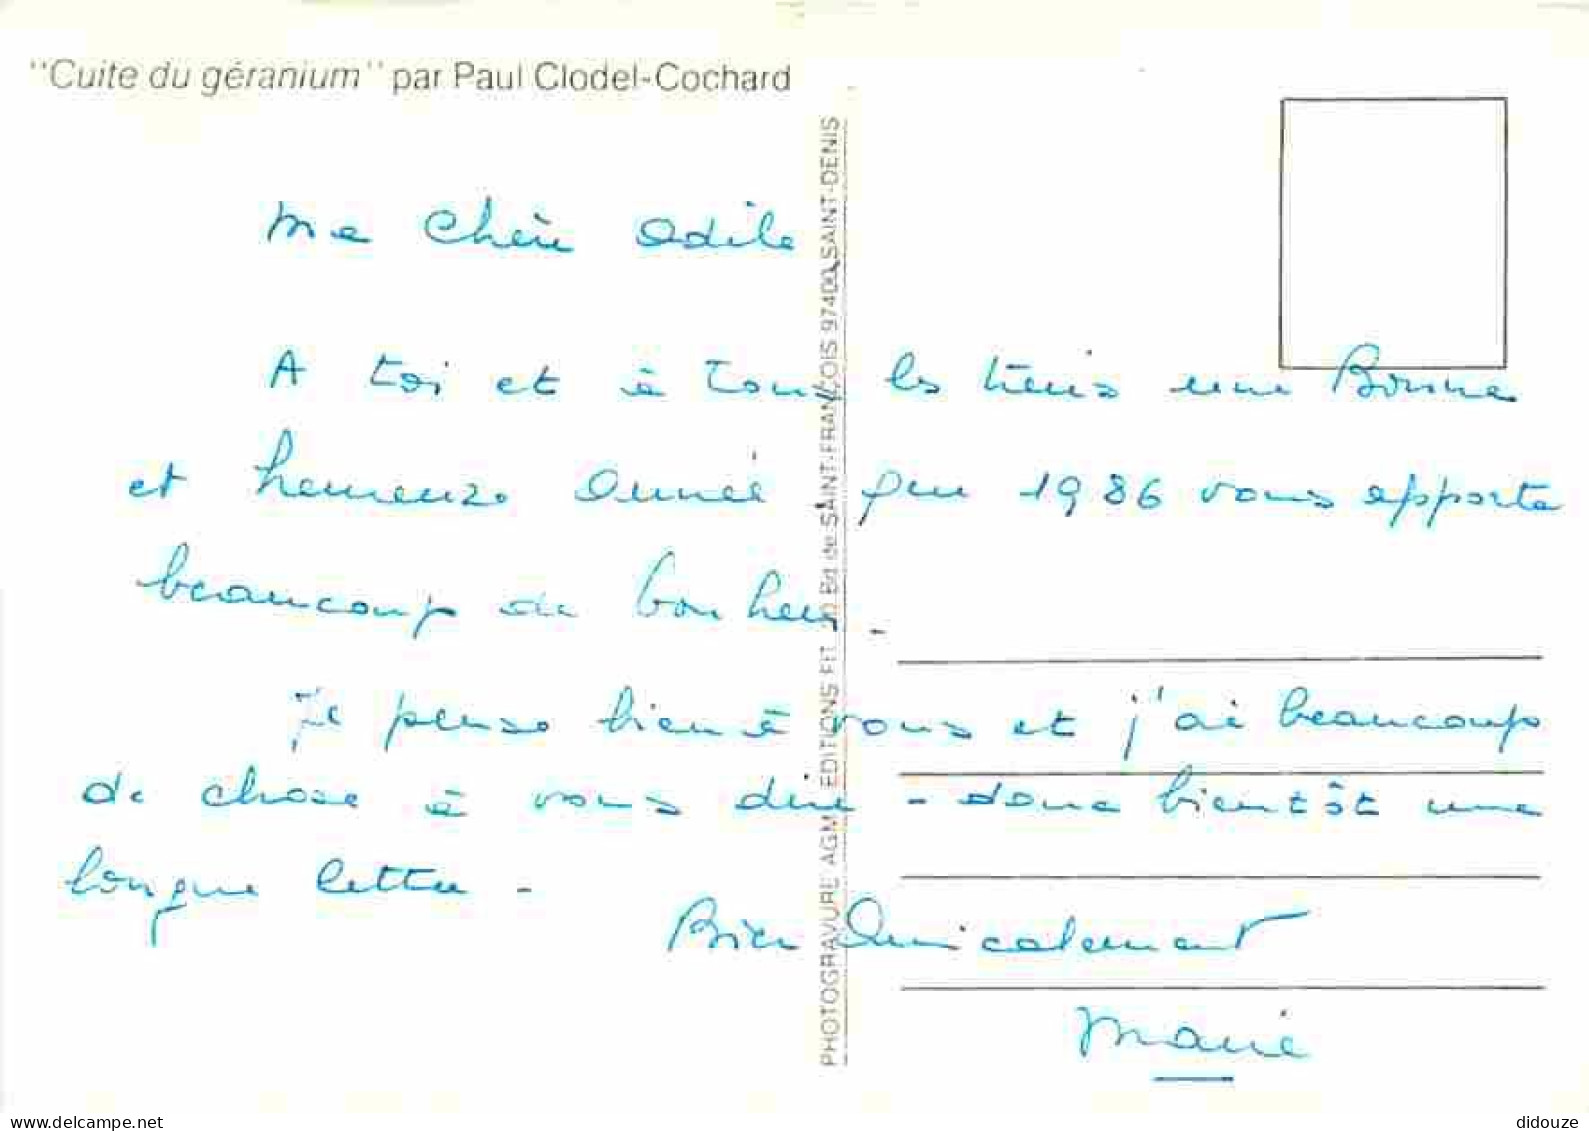 "Cuite du géranium" par Paul Clodel-Cochard
Ma Chère Odile
A toi et à tous les tiens une Bonne
et heureuse Année que 1986 vous apporte
beaucoup de bonheur.
Je pense bien à vous et j'ai beaucoup
de chose à vous dire - donc bientôt une
longue lettre -
Bien Amicalement
Marie
PHOTOGRAVURE AGM EDITIONS FIT Bd de SAINT-FRANÇOIS 97400 SAINT-DENIS
delcampe.net
didouze